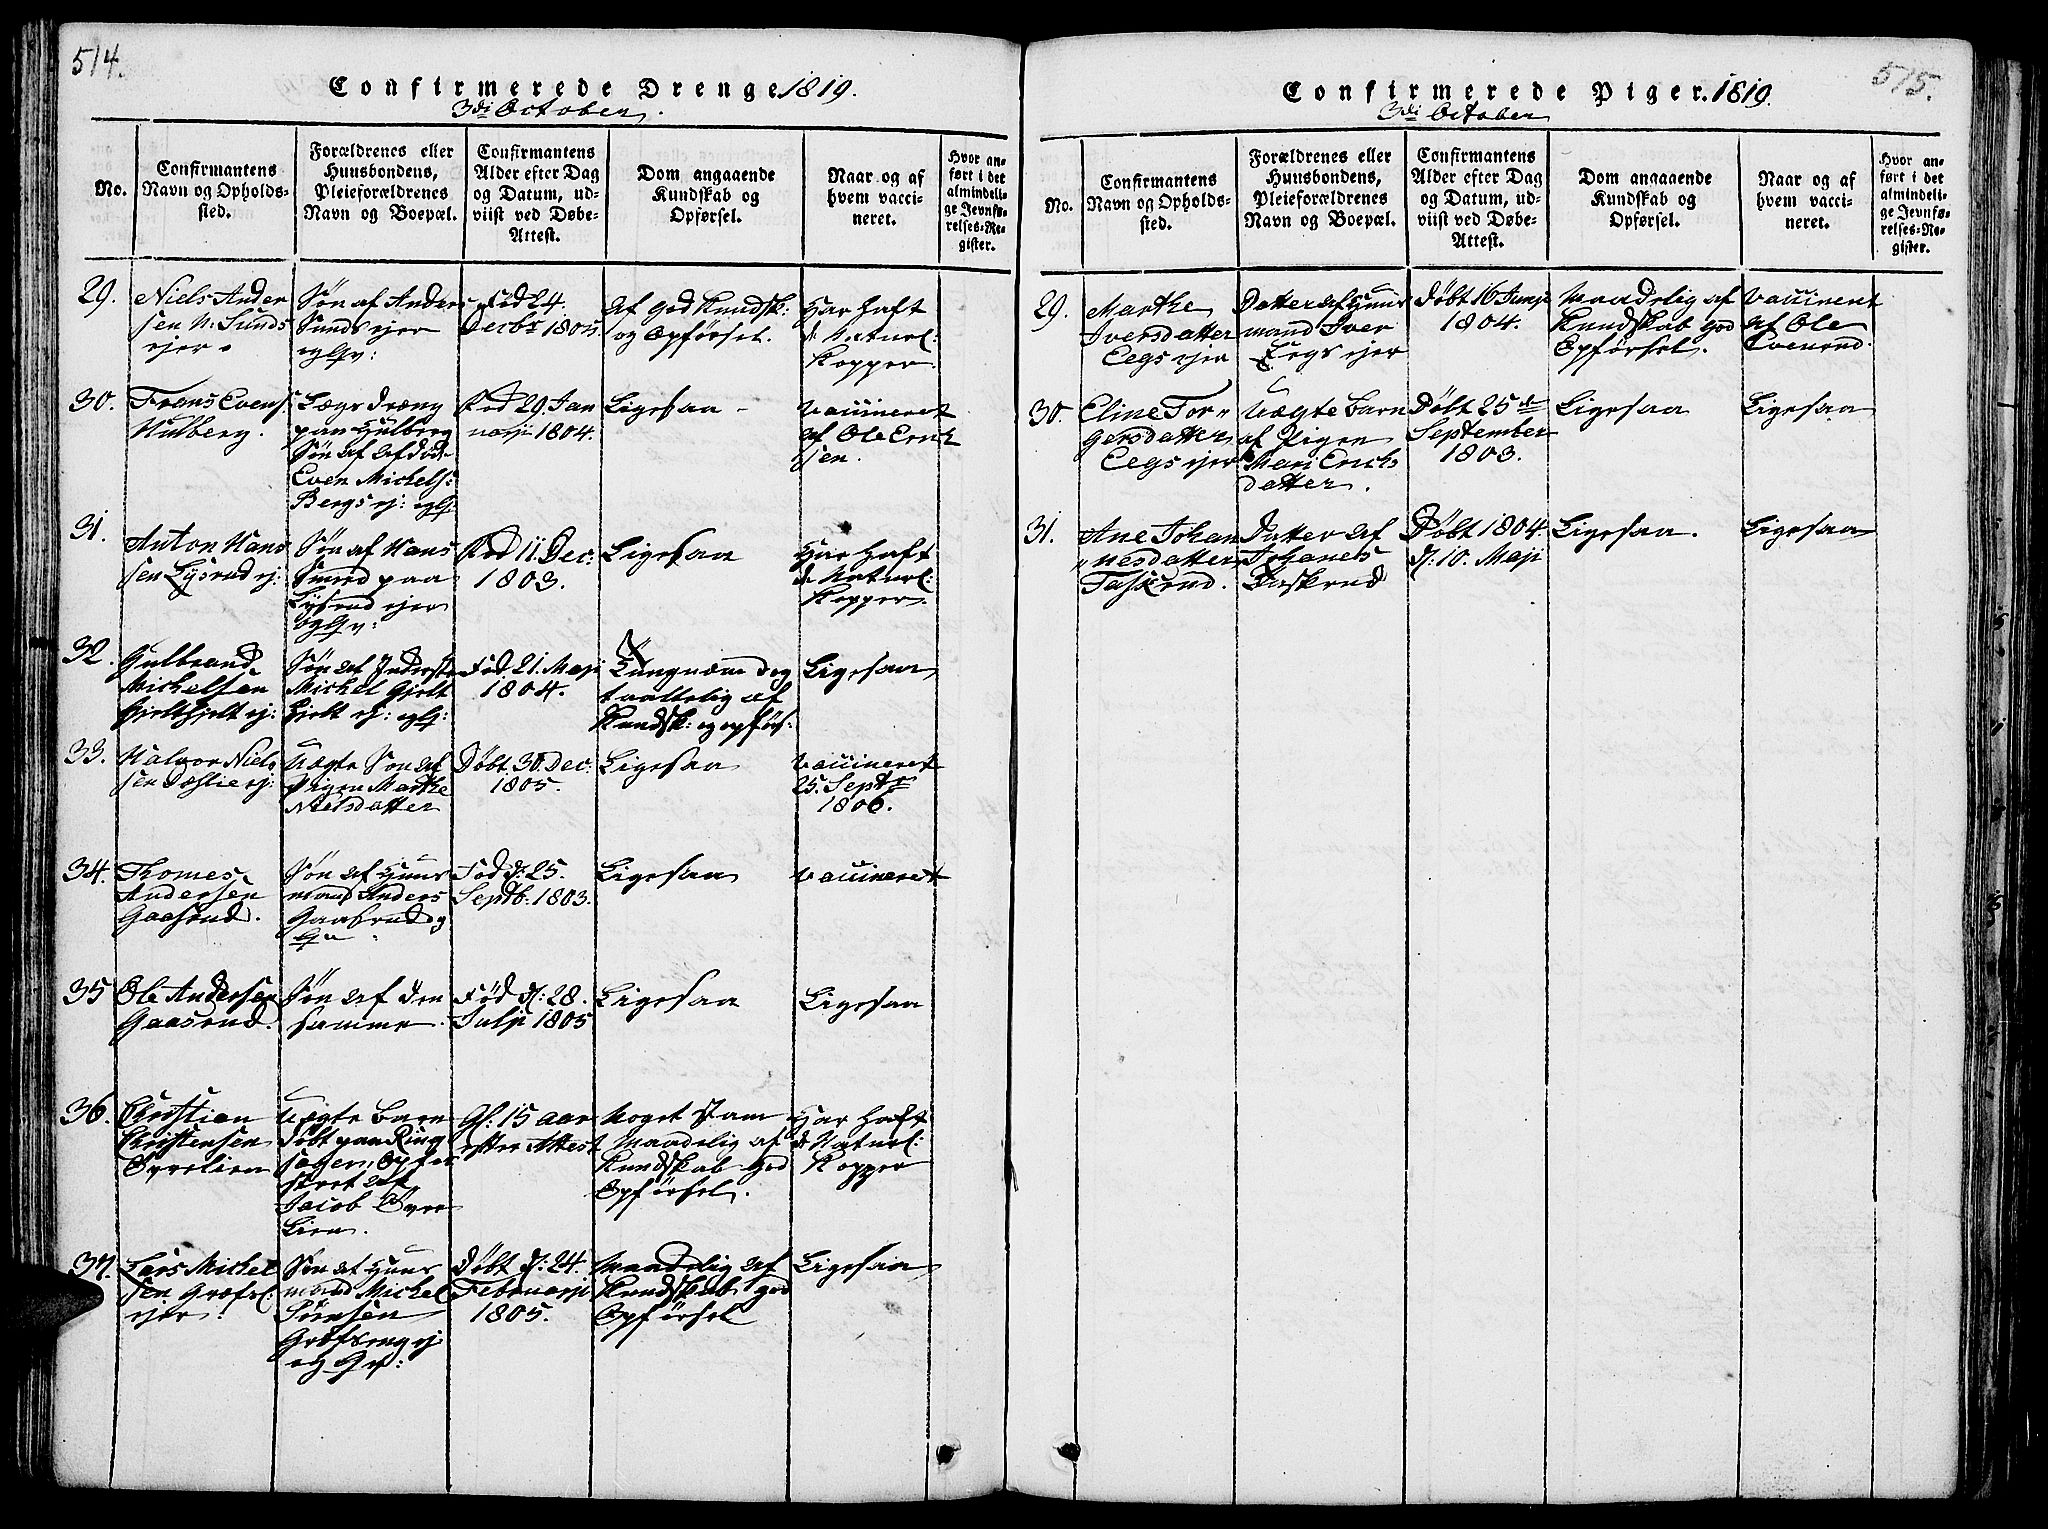 514.
Confirmerede Drenge 1819.
3di October.
No.
Confirmantens
Navn og Opholds-
sted.
Forældrenes eller
Huusbondens,
Pleieforældrenes
Navn og Boepæl.
Confirmantens
Alder efter Dag
og Datum, ud-
viist ved Døbe-
Attest.
Dom angaaende
Kundskab og
Opførsel.
Naar og af
hvem vacci-
neret.
Hvor an-
ført i det
almindeli-
ge Jevnfø-
relses-Re-
gister.
29.
Niels Ander
sen N: Sunds
ejer.
Søn af Anders
Sunds ejer
og Gv:
Fød 24.
Decbr 1805.
af god Kundsk:
og Opførsel.
Har haft
d: Naturl:
Kopper.
30.
Frans Evens:
Hulberg.
Lægs dræng
paa Hulberg
Søn af afdøde
Even Michels:
Bergs ej: og G:
Fød 29. Jan
narji 1804.
Ligesaa -
Vaccineret
af Ole Erik
sen.
31.
Anton Hans
sen Lysrud ej:
Søn af Hans
Smed paa
Lysrud ejer
og Gv:
Fød 11. Dec:
1803.
Ligesaa
Har haft
d: Naturl:
Kopper.
32.
Gulbrand
Michelsen
Gjelthjelt ej:
Søn af Inderste
Michel Gjelt
hjelt ej: og G:
Fød 21. Maji
1804.
Tungnæm dog
taaltelig af
Kundsk: og opførs:
Ligesaa
33.
Halvor Niel
sen Dæhlie ej:
Uægte Søn af
Pigen Marthe
Nielsdatter
Døbt 30 Dec:
1805.
Ligesaa
Vaccineret
25. Septr
1806.
34.
Thomes
Andersen
Gaasrud.
Søn af Huus
mand Anders
Gaasrud og
Gv
Fød d: 25.
Septb: 1803.
Ligesaa
Vaccineret
35
Ole Andersen
Gaasrud.
Søn af den
samme.
Fød d: 28.
Julji 1805
Ligesaa
Ligesaa
36.
Christian
Christensen
Øvrelien
Uægte Barn
Døbt paa Ring
sagen, Opfos
stret af
Jacob Øvre
Lien.
Gl: 15 aar
efter Attest
Noget stam
Maadelig af
Kundskab god
Opførsel.
Har haft
d: Naturl:
Kopper
37.
Lars Michel
sen Græfs:
ejer.
Søn af Huus
mand Michel
Sørensen
Græfseng ej
og Gv:
Døbt d: 24.
Februarji
1805.
Maadelig af
Kundskab god
Opførsel
Ligesaa
515.
Confirmerede Piger. 1819.
3di October
No.
Confirmantens
Navn og Opholds-
sted.
Forældrenes eller
Huusbondens,
Pleieforældrenes
Navn og Boepæl.
Confirmantens
Alder efter Dag
og Datum, ud-
viist ved Døbe-
Attest.
Dom angaaende
Kundskab og
Opførsel.
Naar og af
hvem vacci-
neret.
Hvor an-
ført i det
almindeli-
ge Jevnfø-
relses-Re-
gister.
29.
Marthe
Iversdatter
Eegs ejer
Datter af Huus
mand Iver
Eegs ejer
Døbt 16 Junji
1804.
Maadelig af
Kundskab god
Opførsel.
Vaccineret
af Ole
Evenrud.
30.
Eline Tor"
gersdatter
Eegs ejer
Uægte Barn
af Pigen
Mari Erichs
datter.
Døbt 25de
September
1803.
Ligesaa
Ligesaa
31.
Ane Johan
"nesdatter
Taskerud.
Datter af
Johanes
Taskerud
Døbt 1804.
d: 10. Maji
Ligesaa.
Ligesaa